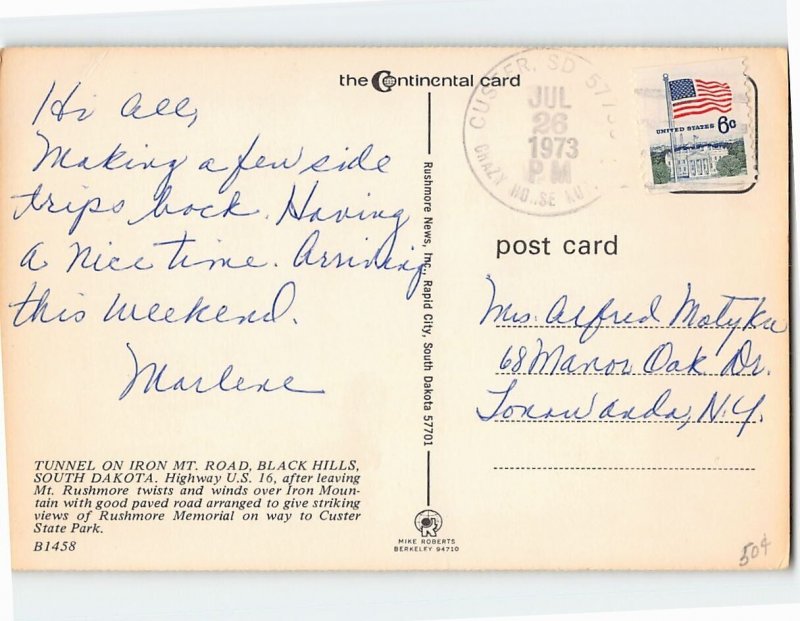 the Continental card
CUSTER, SD
JUL
26
1973
PM
UNITED STATES 6c
Hi All,
Making a few side
trips back. Having
a nice time. Arriving
this weekend.
Marlene
Rushmore News, Inc., Rapid City, South Dakota 57701
post card
Mrs. Alfred Motyka
68 Manor Oak Dr.
Tonawanda, N.Y.
TUNNEL ON IRON MT. ROAD, BLACK HILLS,
SOUTH DAKOTA. Highway U.S. 16, after leaving
Mt. Rushmore twists and winds over Iron Moun-
tain with good paved road arranged to give striking
views of Rushmore Memorial on way to Custer
State Park.
B1458
MIKE ROBERTS
BERKELEY 94710
50¢